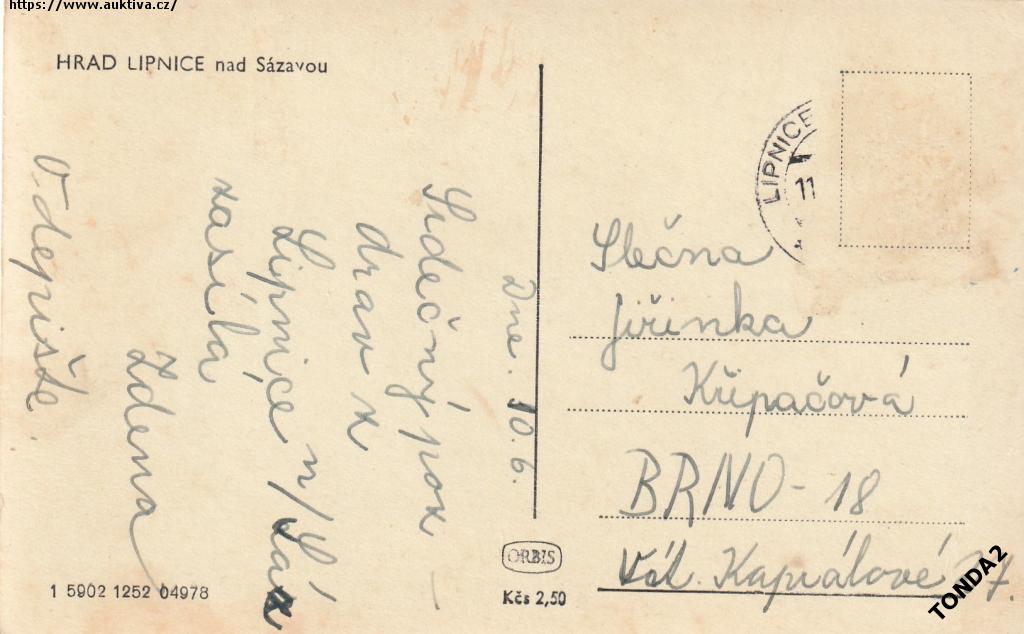 https://www.auktiva.cz/
HRAD LIPNICE nad Sázavou
Dne. 10. 6.
Srdečný poz
drav z
Lipnice n/Sáz
zasílá
Zdena
Odepiště.
LIPNICE
11
Slečna
Jiřinka
Křipačová
BRNO - 18
Kapiálové 27.
ORBIS
Kčs 2,50
1 5902 1252 04978
TONDA2